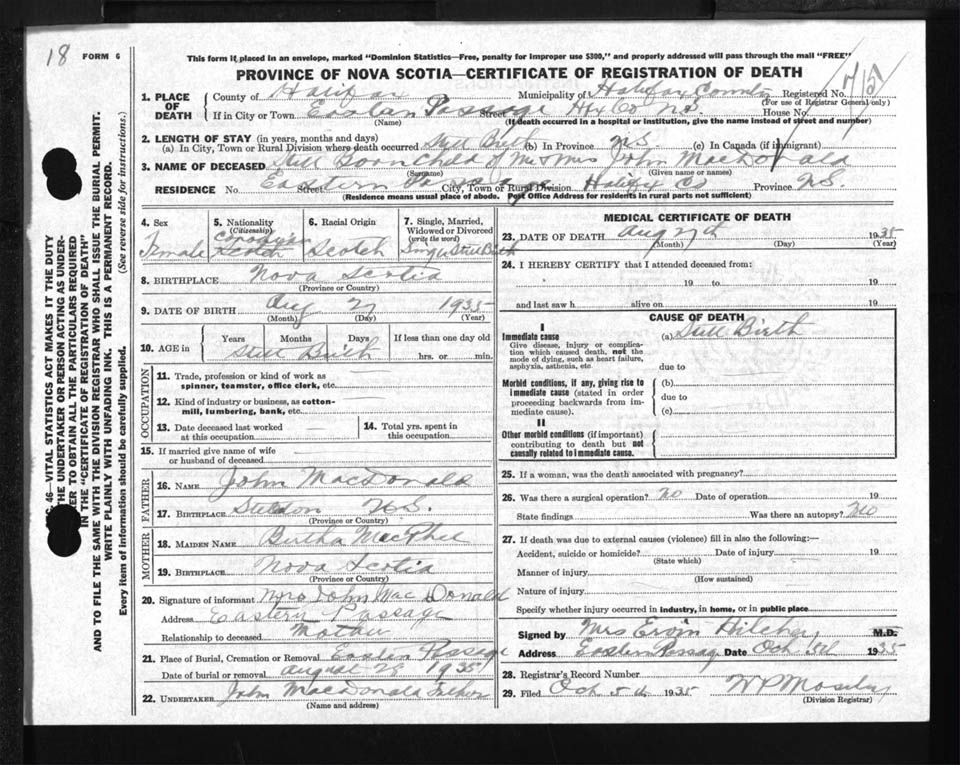 18 FORM 6
This form if placed in an envelope, marked "Dominion Statistics—Free, penalty for improper use $300," and properly addressed will pass through the mail "FREE"
PROVINCE OF NOVA SCOTIA—CERTIFICATE OF REGISTRATION OF DEATH
1. PLACE OF DEATH
County of Halifax Municipality of Halifax County Registered No.
(For use of Registrar General only)
If in City or Town Eastern Passage Street Hfx Co N.S. House No.
(Name) (If death occurred in a hospital or institution, give the name instead of street and number)
2. LENGTH OF STAY (in years, months and days)
(a) In City, Town or Rural Division where death occurred Still Birth (b) In Province N.S. (c) In Canada (if immigrant)
3. NAME OF DECEASED Still Born Child of Mr & Mrs John MacDonald
(Surname) (Given name or names)
RESIDENCE No. Eastern Passage Street City, Town or Rural Division Halifx Co Province N.S.
(Residence means usual place of abode. Post Office Address for residents in rural parts not sufficient)
4. Sex
Female
5. Nationality
(Citizenship)
Canadian
Scotch
6. Racial Origin
Scotch
7. Single, Married, Widowed or Divorced
(write the word)
Single Still Birth
8. BIRTHPLACE Nova Scotia
(Province or Country)
9. DATE OF BIRTH Aug 27 1935
(Month) (Day) (Year)
10. AGE in Years Months Days If less than one day old
Still Birth hrs. or min.
OCCUPATION
11. Trade, profession or kind of work as spinner, teamster, office clerk, etc.
12. Kind of industry or business, as cotton-mill, lumbering, bank, etc.
13. Date deceased last worked at this occupation
14. Total yrs. spent in this occupation
15. If married give name of wife or husband of deceased
FATHER
16. NAME John MacDonald
17. BIRTHPLACE N.S.
(Province or Country)
MOTHER
18. MAIDEN NAME Bertha MacPhee
19. BIRTHPLACE Nova Scotia
(Province or Country)
20. Signature of informant Mrs John MacDonald
Address Eastern Passage
Relationship to deceased Mother
21. Place of Burial, Cremation or Removal Eastern Passage
Date of burial or removal August 28 1935
22. UNDERTAKER John MacDonald Father
(Name and address)
MEDICAL CERTIFICATE OF DEATH
23. DATE OF DEATH Aug 27th 1935
(Month) (Day) (Year)
24. I HEREBY CERTIFY that I attended deceased from:
19 to 19
and last saw h alive on 19
CAUSE OF DEATH
I
Immediate cause (a) Still Birth
Give disease, injury or complication which caused death, not the mode of dying, such as heart failure, asphyxia, asthenia, etc.
due to
Morbid conditions, if any, giving rise to immediate cause (stated in order proceeding backwards from immediate cause).
(b)
due to
(c)
II
Other morbid conditions (if important) contributing to death but not causally related to immediate cause.
25. If a woman, was the death associated with pregnancy?
26. Was there a surgical operation? No Date of operation 19
State findings Was there an autopsy? No
27. If death was due to external causes (violence) fill in also the following:—
Accident, suicide or homicide? Date of injury 19
(State which)
Manner of injury
(How sustained)
Nature of injury
Specify whether injury occurred in industry, in home, or in public place
Signed by Mrs Ervin M.D.
Address Eastern Passage Date Oct 1935
28. Registrar's Record Number
29. Filed Oct 5th 1935 W P Mosely
(Division Registrar)
46—VITAL STATISTICS ACT MAKES IT THE DUTY
THE UNDERTAKER OR PERSON ACTING AS UNDER-
TO OBTAIN ALL THE PARTICULARS REQUIRED
IN THE "CERTIFICATE OF REGISTRATION OF DEATH"
AND TO FILE THE SAME WITH THE DIVISION REGISTRAR WHO SHALL ISSUE THE BURIAL PERMIT.
WRITE PLAINLY WITH UNFADING INK. THIS IS A PERMANENT RECORD.
Every item of information should be carefully supplied. (See reverse side for instructions.)